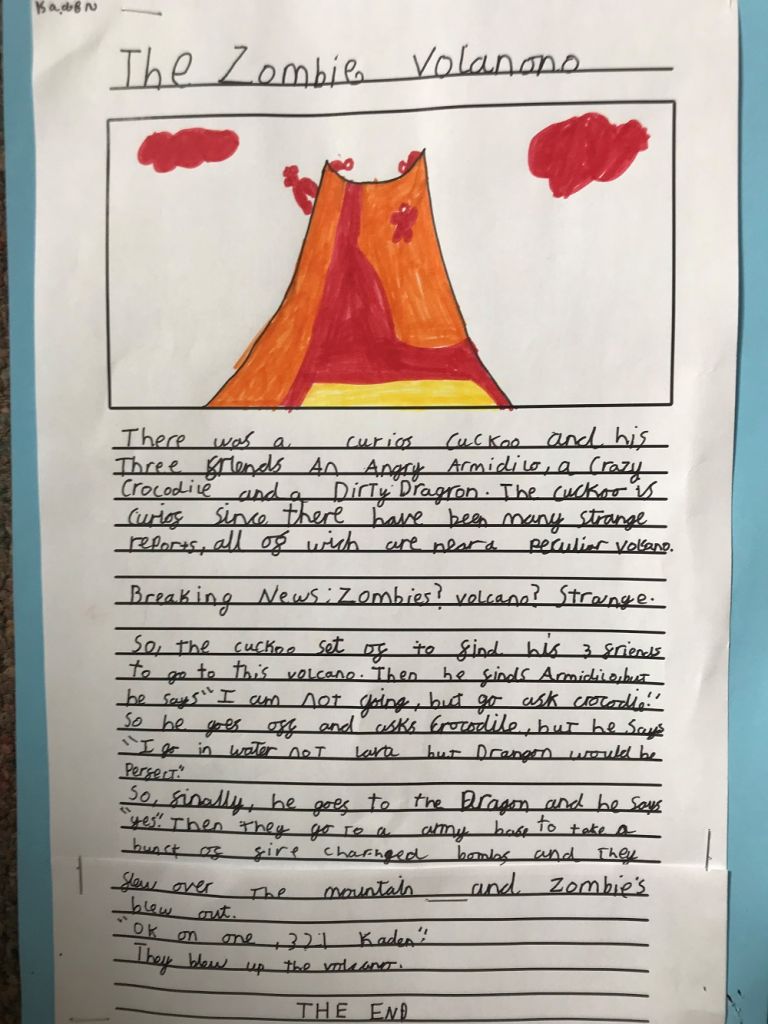 Kaden
The Zombie Volanono
There was a curios cuckoo and his
Three friends An Angry Armidilo, a Crazy
Crocodile and a Dirty Dragron. The cuckoo is
curios since there have been many strange
reports, all of wich are near a peculiar volcano.
Breaking News: Zombies? volcano? Strange.
So, the cuckoo set of to find his 3 friends
to go to this volcano. Then he finds Armidilo, but
he says "I am not going, but go ask crocodile."
So he goes off and asks Crocodile, but he says
"I go in water not lava but Drangon would be
Perfect."
So, finally, he goes to the Dragon and he says
"yes". Then they go to a army base to take a
bunct of fire charnged bombs and They
flew over The mountain and Zombie's
blew out.
"OK on one, 321 Kaden"
They blew up the volcano.
THE END